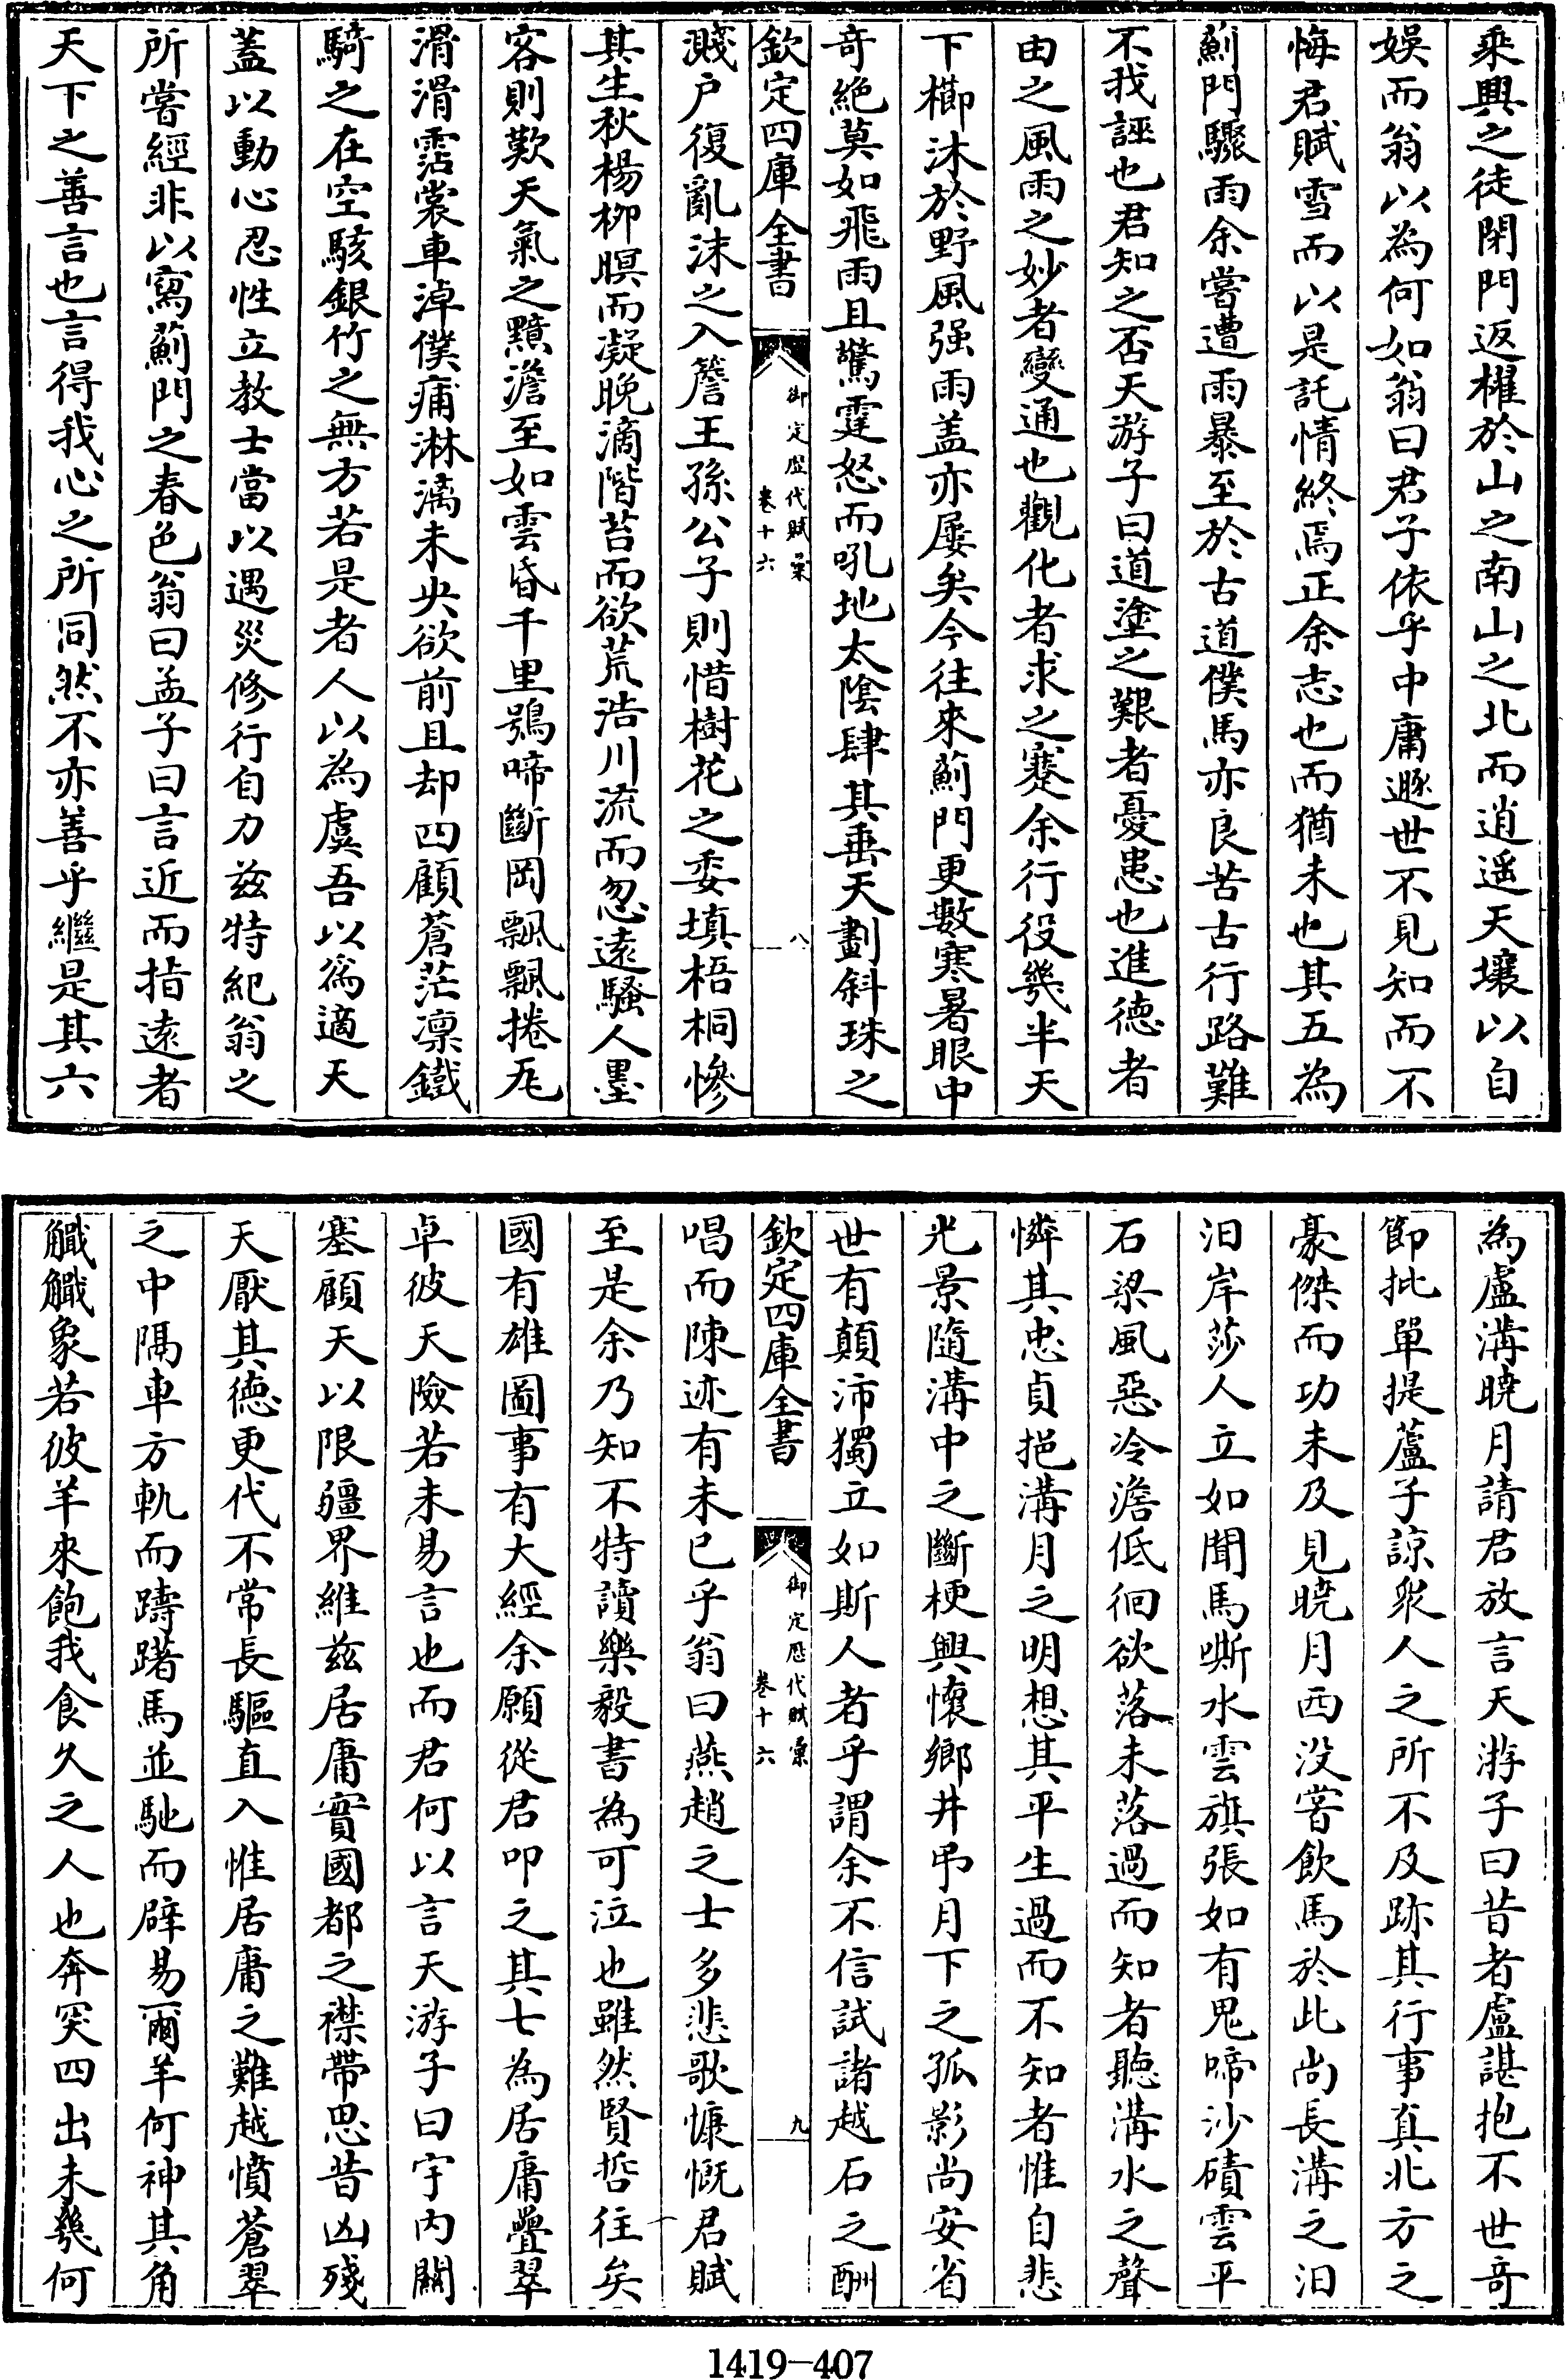 乘興之徒閉門返櫂於山之南山之北而逍遥天壤以自
娛而翁以為何如翁曰君子依乎中庸遯世不見知而不
悔君賦雪而以是託情終焉正余志也而猶未也其五為
薊門驟雨余嘗遭雨暴至於古道僕馬亦良苦古行路難
不我誣也君知之否天游子曰道塗之艱者憂患也進德者
由之風雨之妙者變通也觀化者求之蹇余行役幾半天
下櫛沐於野風强雨盖亦屡矣今往來薊門更數寒暑眼中
竒絶莫如飛雨且驚霆怒而吼地太陰肆其垂天劃斜珠之
欽定四庫全書
御定歴代賦彙
卷十六
八
濺户復亂沫之入簷王孫公子則惜樹花之委填梧桐慘
其生秋楊柳暝而凝晚滴階苔而欲荒浩川流而忽遠騷人墨
客則歎天氣之黯澹至如雲昏千里鴉啼斷岡飄飄捲旡
滑滑霑裳車淖僕痡淋漓未央欲前且却四顧蒼茫凛鐵
騎之在空駭銀竹之無方若是者人以為虞吾以為適天
蓋以動心忍性立教士當以遇災修行自力兹特紀翁之
所嘗經非以寫薊門之春色翁曰孟子曰言近而指遠者
天下之善言也言得我心之所同然不亦善乎繼是其六
為盧溝曉月請君放言天游子曰昔者盧諶抱不世竒
節批單提蘆子諒衆人之所不及跡其行事真北方之
豪傑而功未及見曉月西没嘗飲馬於此尚長溝之汨
汨岸莎人立如聞馬嘶水雲旗張如有鬼啼沙磧雲平
石梁風惡冷澹低徊欲落未落過而知者聽溝水之聲
憐其忠貞挹溝月之明想其平生過而不知者惟自悲
光景隨溝中之斷梗興懷鄉井弔月下之孤影尚安省
世有顛沛獨立如斯人者乎謂余不信試諸越石之酬
欽定四庫全書
御定歴代賦彙
卷十六
九
唱而陳迹有未已乎翁曰燕趙之士多悲歌慷慨君賦
至是余乃知不特讀樂毅書為可泣也雖然賢哲往矣
國有雄圖事有大經余願從君叩之其七為居庸疊翠
卓彼天險若未易言也而君何以言天游子曰宇内關
塞顧天以限疆界維兹居庸實國都之襟帶思昔凶殘
天厭其德更代不常長驅直入惟居庸之難越憤蒼翠
之中隔車方軌而躊躇馬並馳而辟易爾羊何神其角
觿觿象若彼羊來飽我食久之人也奔突四出未幾何
1419-407